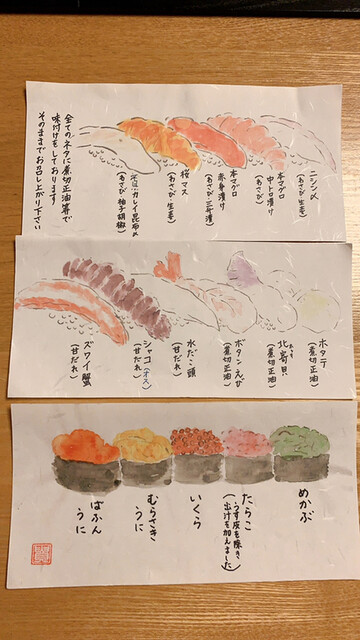 ニシン〆
(わさび 生姜)
本マグロ
中トロ漬け
(わさび)
本マグロ
赤身漬け
(わさび 三升漬)
桜マス
(わさび 生姜)
カレイ昆布〆
(わさび 柚子胡椒)
全てのネタに煮切正油等で
味付けをしております
そのままでお召し上がり下さい
ホタテ
(煮切正油)
北寄貝
(煮切正油)
ボタンえび
(煮切正油)
水だこ頭
(甘だれ)
シャコ(オス)
(甘だれ)
ズワイ蟹
(甘だれ)
めかぶ
たらこ
(うす皮を除き
出汁を加えました)
いくら
むらさき
うに
ばふん
うに